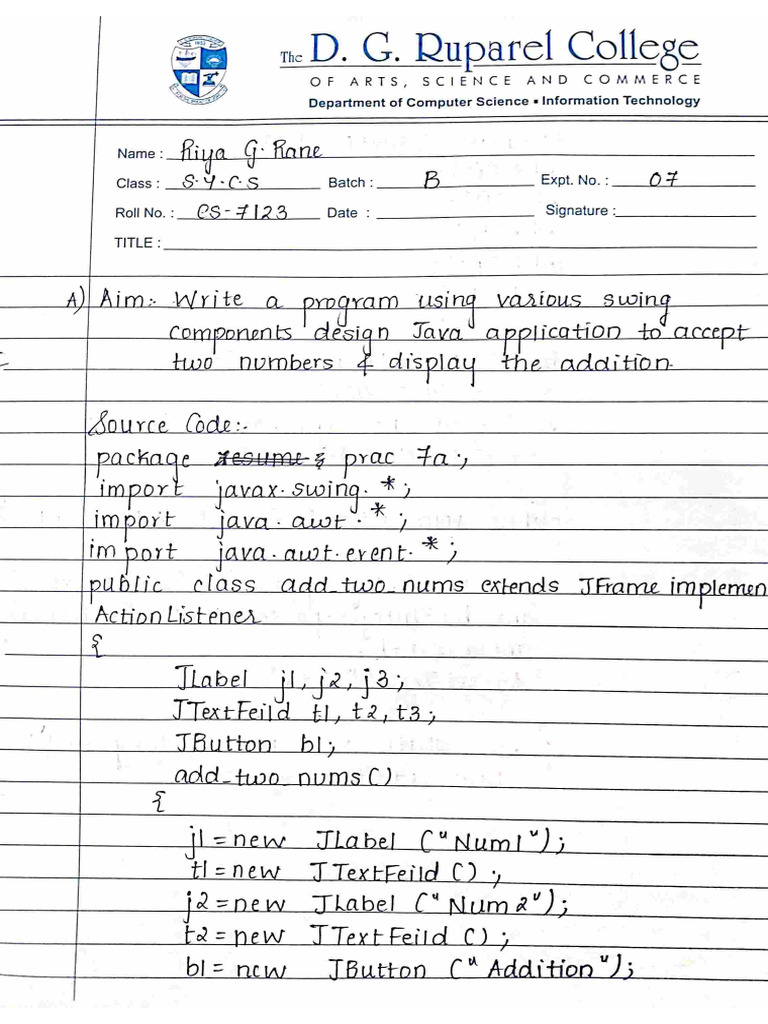 The D. G. Ruparel College
OF ARTS, SCIENCE AND COMMERCE
Department of Computer Science ▪ Information Technology
Name : Riya G. Rane
Class : S.Y.C.S Batch : B Expt. No. : 07
Roll No. : CS-7123 Date : Signature :
TITLE :
A) Aim:- Write a program using various swing
components design Java application to accept
two numbers & display the addition.
Source Code:-
package resume; prac 7a;
import javax.swing.*;
import java.awt.*;
import java.awt.event.*;
public class add_two_nums extends JFrame implemen
ActionListener
{
JLabel j1, j2, j3;
JTextFeild t1, t2, t3;
JButton b1;
add_two_nums()
{
j1 = new JLabel ("Num1");
t1 = new JTextFeild ();
j2 = new JLabel ("Num2");
t2 = new JTextFeild ();
b1 = new JButton ("Addition");